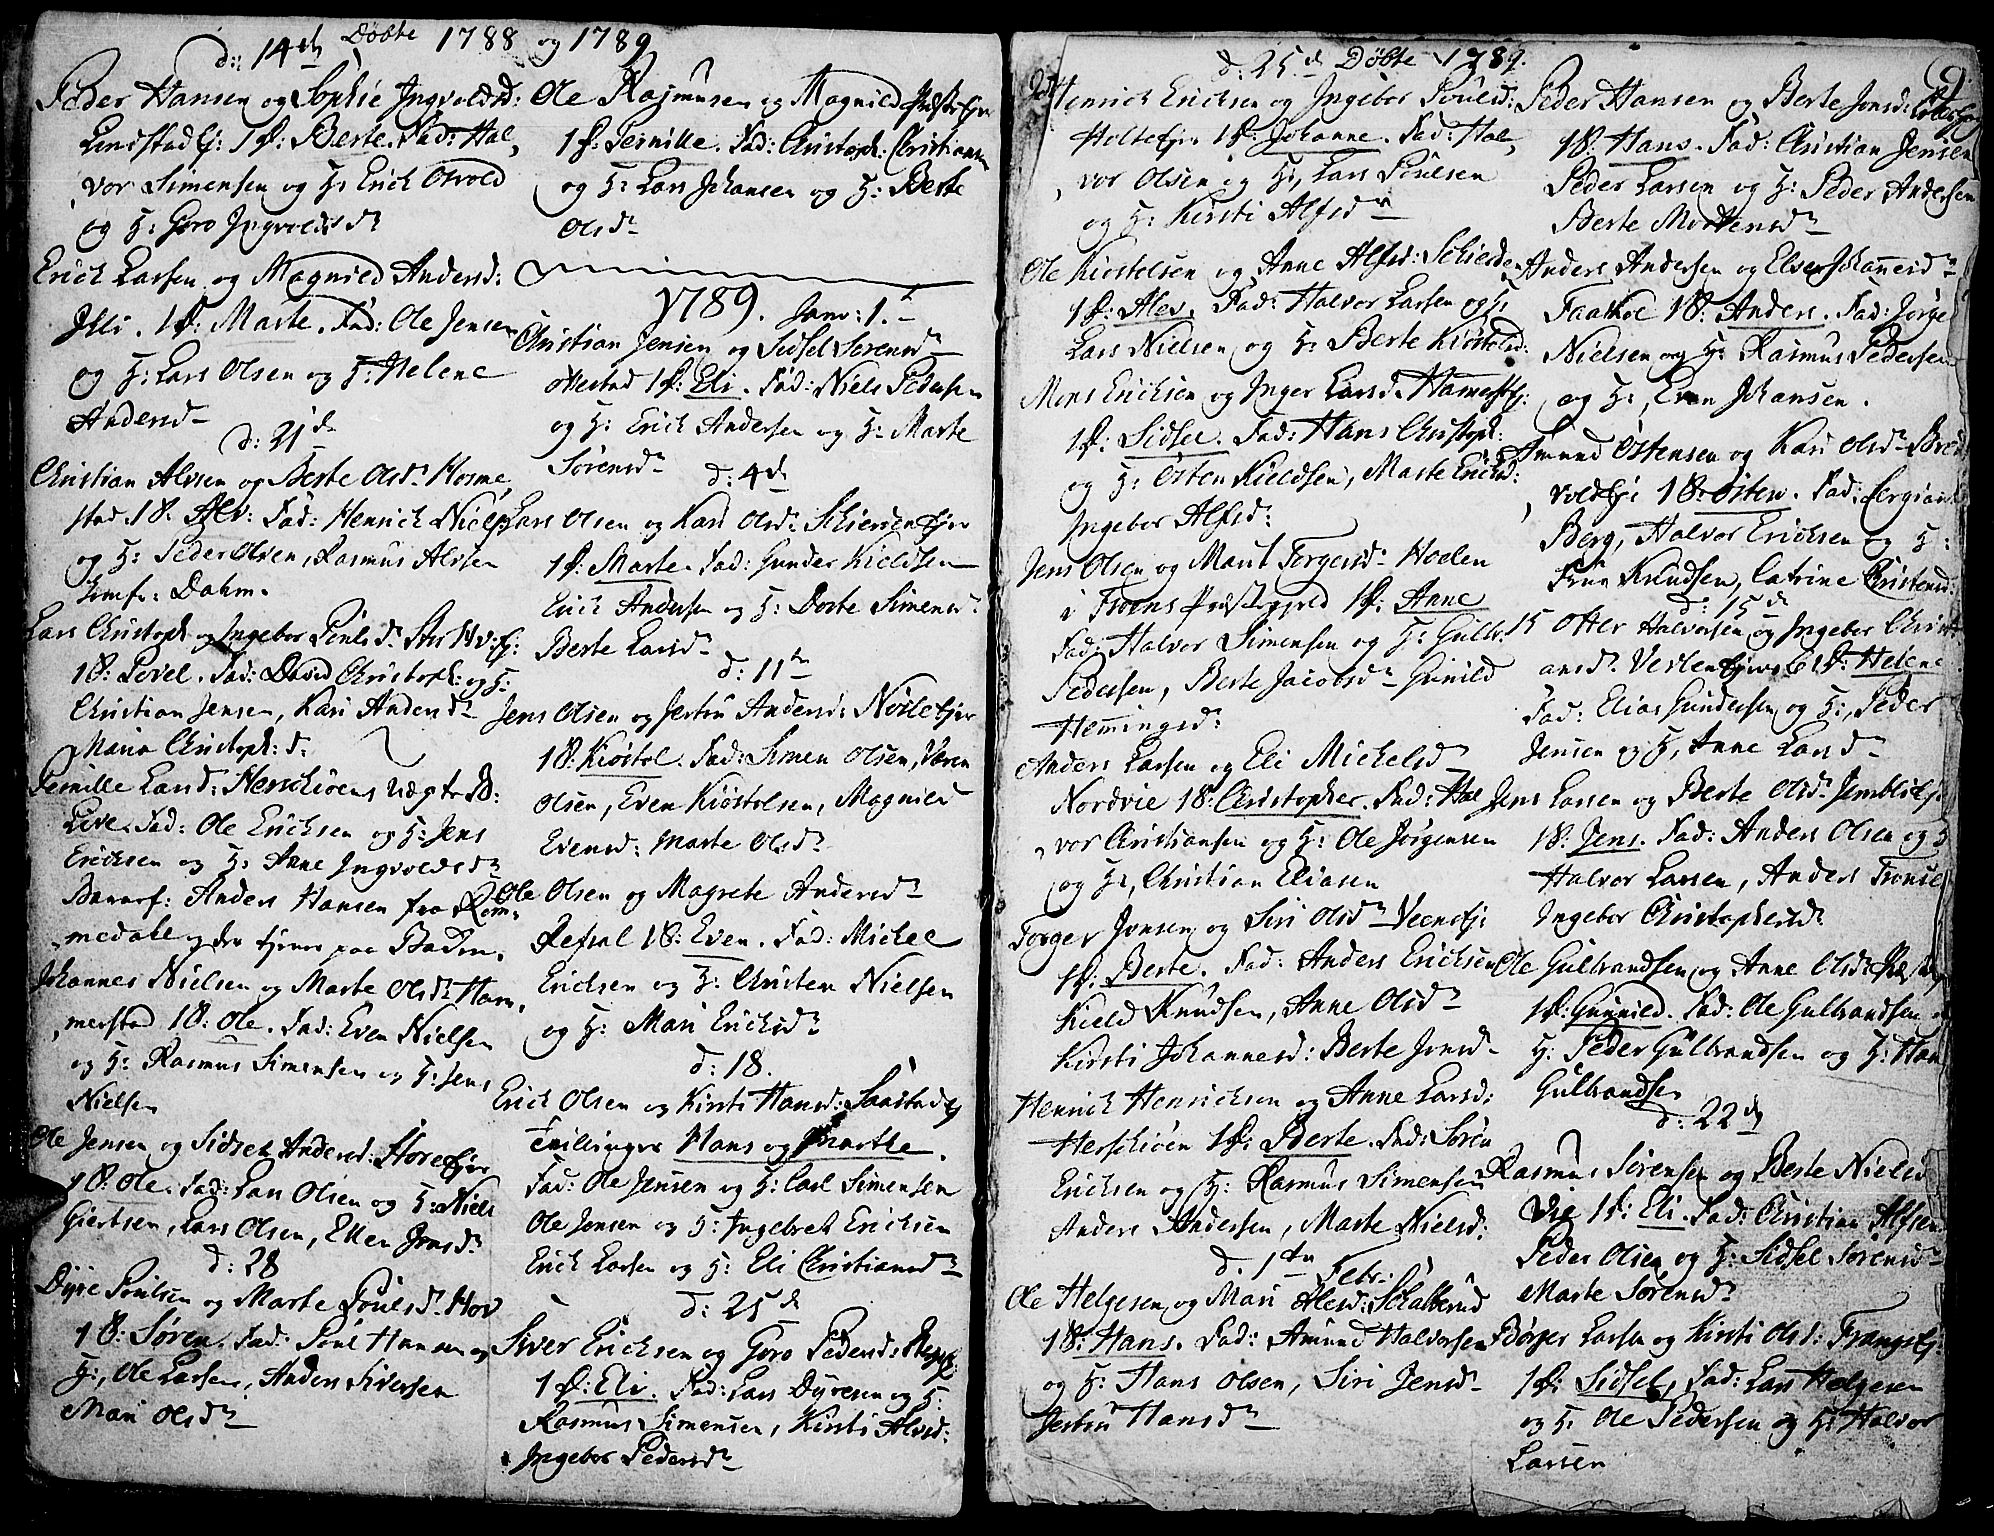 Døbte 1788 og 1789
d: 14de
Peder Hansen og Sophie Ingvoldsd:
Lindstad Ej: 1 P: Berte. Fad: Hal,
vor Simensen og H: Erich
og H: Goro Ingvoldsdr
Erich Larsen og Magnild Andersd:
Illi. 1 P: Marte. Fad: Ole Jensen
og H: Lars Olsen og H: Helene
Andersdr
d: 21de
Christian Alvsen og Berte Olsdr Hosme,
stad. 1 S: Alv: Fad: Henrich Niels
og H: Peder Olsen, Rasmus Alvsen
Jomfr: Dahm.
Lars Christoph: og Ingebor Pouls dr
1 S: Povel. Fad: David Christoph: og H:
Christian Jensen, Kari Andersdr
Maria Christoph: d:
Pernille Larsd: Herschoens Uægte B:
Live. Fad: Ole Erichsen og H: Jens
Erichsen og H: Anne Ingvoldsdr
Barnef: Anders Hansen fra Rom,
medahl og der tjener paa
Johannes Nielsen og Marte Olsdr Ham,
merstad 1 S: Ole. Fad: Even Nielsen
og H: Rasmus Simensen og H: Jens
Nielsen
Ole Jensen og Sidsel Andersd:
1 S: Ole. Fad: Lars Olsen og H: Niels
Giertsen, Lars Olsen, Ellen Jensdr
d: 28
Dyre Poulsen og Marte Poulsdr Hov
1 S: Søren. Fad: Poul Hansen og
H:, Ole Larsen, Anders Siversen
Mari Olsdr
Ole Rasmusen og Magnild
1 P: Pernille. Fad: Christoph: Christiansen
og H: Lars Johansen og H: Berte
Olsdr
1789. Janv: 1.
Christian Jensen og Sidsel Sørensdr
Ottestad 1 P: Eli. Fad: Niels Pedersen
og H: Erich Andersen og H: Marte
Sørensdr
d: 4de
Lars Olsen og Kari Olsdr
1 P: Marte. Fad: Gunder Kieldsen
Erich Andersen og H: Dorte Simensdr
Berte Larsdr
d: 11te
Jens Olsen og Jertru Andersd:
1 S: Kiøstol. Fad: Simen Olsen,
Olsen, Even Kiøstolsen, Magnild
Evensd: Marte Olsdr
Ole Olsen og Magrete Andersdr
Refsal 1 S: Even. Fad: Michel
Erichsen og H: Christen Nielsen
og H: Mari Erichsdr
d: 18.
Erich Olsen og Kirsti Hansd: Saastad Ej
Tvillinger Hans og Marthe.
Fad: Ole Jensen og H: Carl Simensen
Ole Jonsen og H: Ingebret Erichsen
Erich Larsen og H: Eli Christiansdr
d: 25de
Siver Erichsen og Goro Pedersd:
1 P: Eli. Fad: Lars Dyresen og H:
Rasmus Simensen, Kirsti Alvsd:
Ingebor Pedersdr
d: 25de Døbte 1789.
Henrich Erichsen og Ingebor Poulsd:
Holte Ejr 1 P: Johanne. Fad: Hal,
vor Olsen og H:, Lars Poulsen
og H: Kirsti Alfsdr
Ole Kiøstelsen og Anne Alfsd:
1 P: Alev. Fad: Halvor Larsen og H:
Lars Nielsen og H: Berte Kiøstelsd:
Mons Erichsen og Inger Larsd:
1 P: Sidsel. Fad: Hans Christoph:
og H: Østen Kieldsen, Marte Erichsd:
Ingebor Alfsd:
Jens Olsen og Marit Torgersdr Hoelen
i Troens Præstegield 1 P: Anne
Fad: Halvor Simensen og H: Gulbr.
Pedersen, Berte Jacobsdr Gunild
Hemingsd:
Anders Larsen og Eli Michelsdr
Nordvie 1 S: Christopher. Fad: Hal
vor Christiansen og H: Ole Jørgensen
og H:, Christian Eliasen
Torger Jensen og Siri Olsdr Veens Ej:
1 P: Berte. Fad: Anders Erichsen
Kield Knudsen, Anne Olsdr
Kirsti Johannesd: Berte Jensdr
Henrich Henrichsen og Anne Larsd:
Herschoen 1 P: Berte. Fad: Søren
Erichsen og H: Rasmus Simensen
Anders Andersen, Marte Nielsd:
d: 1ste Febr:
Ole Helgesen og Mari Alvsd:
1 S: Hans. Fad: Amund Halvorsen
og H: Hans Olsen, Siri Jensdr
Jertru Hansdr
9
Peder Hansen og Berte Jensd:
1 S: Hans. Fad: Christian Jensen
Peder Larsen og H: Peder Andersen
Berte Mortensdr
Anders Andersen og Elsen Johannesdr
Faathoe 1 S: Anders. Fad: Jørge
Nielsen og H: Rasmus Pedersen
og H:, Even Johansen.
Amund Østensen og Kari Olsdr
vold Ej: 1 S: Østen. Fad:
Berg, Halvor Erichsen og H:
Knudsen, Catrine Christensd:
d: 15de
Otter Halvorsen og Ingebor Christi
ansdr 1 P: Helene
Fad: Elias Gundersen og H:, Peder
Jensen og H, Anne Larsdr
Jens Larsen og Berte Olsdr
1 S: Jens. Fad: Anders Olsen og H
Halvor Larsen, Anders
Ingebor Christophersdr
Ole Gulbrandsen og Anne Olsd:
1 P: Gunild. Fad: Ole Gulbrandsen og
H: Peder Gulbrandsen og H: Hans
Gulbrandsen
d: 22de
Rasmus Sørensen og Berte Nielsd
Vie 1 P: Eli. Fad: Christian Alfsen
Peder Olsen og H: Sidsel Sørensdr
Marte Sørensdr
Børger Larsen og Kirsti Olsd: Frangs Ej:
1 P: Sidsel, Fad: Lars Helgesen
og H: Ole Pedersen og H: Halvor
Larsen